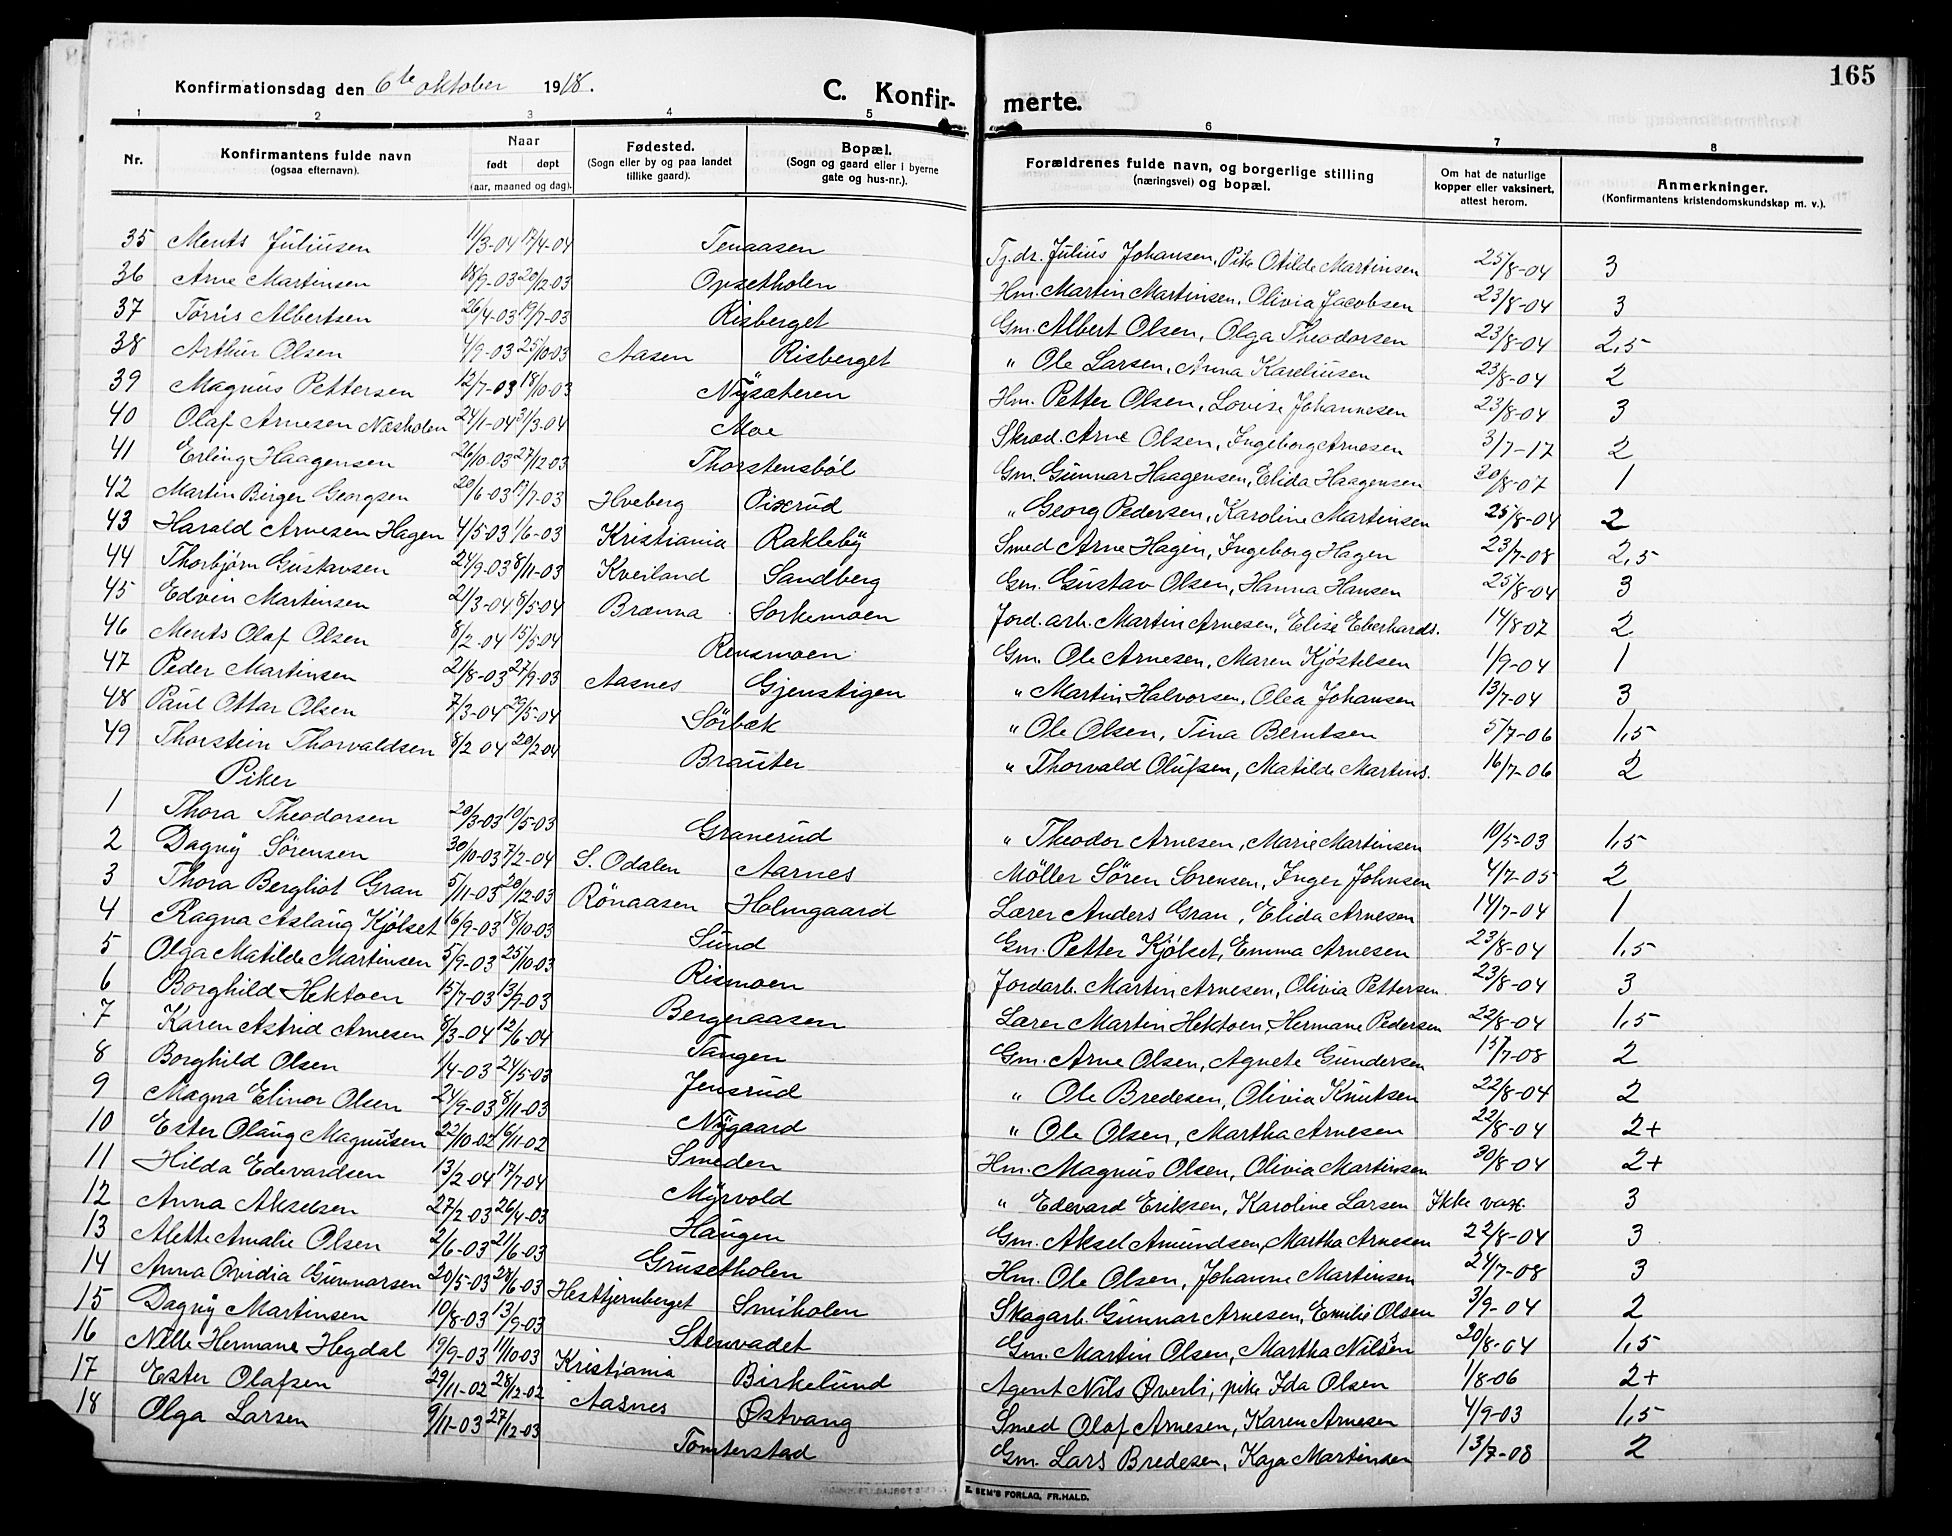 165
Konfirmationsdag den 6te oktober 1918.
C. Konfirmerte.
1 2 3 4 5 6 7 8
Nr. Konfirmantens fulde navn (ogsaa efternavn). Naar født døpt (aar, maaned og dag). Fødested. (Sogn eller by og paa landet tillike gaard). Bopæl. (Sogn og gaard eller i byerne gate og hus-nr.). Forældrenes fulde navn, og borgerlige stilling (næringsvei) og bopæl. Om hat de naturlige kopper eller vaksinert, attest herom. Anmerkninger. (Konfirmantens kristendomskundskap m. v.).
35 Ments Juliusen 11/3-04 17/4-04 Tenaasen Tj.dr. Julius Johansen, Pike Otilde Martinsen 25/8-04 3
36 Arne Martinsen 18/9-03 20/12-03 Opsetholen Hm. Martin Martinsen, Olivia Jacobsen 23/8-04 3
37 Tørris Albertsen 26/4-03 19/7-03 Risberget Gm. Albert Olsen, Olga Theodorsen 23/8-04 2,5
38 Arthur Olsen 4/9-03 25/10-03 Aasen Risberget " Ole Larsen, Anna Kareliusen 23/8-04 2
39 Magnus Pettersen 12/7-03 18/10-03 Nysæteren Hm. Petter Olsen, Lovise Johannesen 23/8-04 3
40 Olaf Arnesen Næsholen 24/1-04 31/3-04 Moe Skræd. Arne Olsen, Ingeborg Arnesen 3/7-17 2
41 Erling Haagensen 26/10-03 27/12-03 Thorstensbøl Gm. Gunnar Haagensen, Elida Haagensen 20/8-07 1
42 Martin Birger Georgsen 20/6-03 12/7-03 Hveberg Piserud " Georg Pedersen, Karoline Martinsen 25/8-04 2
43 Harald Arnesen Hagen 4/5-03 1/6-03 Kristiania Rakleby Smed Arne Hagen, Ingeborg Hagen 23/7-08 2,5
44 Thorbjørn Gustavsen 24/9-03 8/11-03 Kveiland Sandberg Gm. Gustav Olsen, Hanna Hansen 25/8-04 3
45 Edvin Martinsen 21/3-04 8/5-04 Brænna Sorkemoen Jord. arb. Martin Arnesen, Elise Eberhards. 14/8-07 2
46 Ments Olaf Olsen 8/2-04 15/5-04 Rensmoen Gm. Ole Arnesen, Maren Kjøstelsen 1/9-04 1
47 Peder Martinsen 21/8-03 27/9-03 Aasnes Gjenstigen " Martin Halvorsen, Olea Johansen 13/7-04 3
48 Paul Ottar Olsen 7/3-04 29/5-04 Sørbæk " Ole Olsen, Tina Berntsen 5/7-06 1,5
49 Thorstein Thorvaldsen 8/2 04 20/2 04 Brauter " Thorvald Olufsen, Matilde Martins. 16/7-06 2
Piker
1 Thora Theodorsen 20/3-03 10/5-03 Granerud " Theodor Arnesen, Marie Martinsen 10/5-03 1,5
2 Dagny Sørensen 30/10-03 7/2-04 S. Odalen Aarnes Møller Søren Sørensen, Inger Johnsen 4/7-05 2
3 Thora Bergliot Gran 5/11-03 20/12-03 Rønaasen Holmgaard Lærer Anders Gran, Elida Arnesen 14/7-04 1
4 Ragna Aslaug Kjølset 16/9-03 18/10-03 Sund Gm. Petter Kjølset, Emma Arnesen 23/8-04 1,5
5 Olga Matilde Martinsen 5/9-03 25/10-03 Rismoen Jordarb. Martin Arnesen, Olivia Pettersen 23/8-04 3
6 Borghild Hektoen 15/7-03 13/9-03 Bergeraasen Lærer Martin Hektoen, Hermane Pedersen 22/8-04 1,5
7 Karen Astrid Arnesen 8/3-04 12/6-04 Tangen Gm. Arne Olsen, Agnete Gundersen 15/7-08 2
8 Borghild Olsen 1/4-03 24/5-03 Jensrud " Ole Bredesen, Olivia Knutsen 22/8-04 2
9 Magna Elinor Olsen 24/9-03 8/11-03 Nygaard " Ole Olsen, Martha Arnesen 22/8-04 2+
10 Ester Olaug Magnussen 22/10-02 16/11-02 Smeden Hm. Magnus Olsen, Olivia Martinsen 30/8-04 2+
11 Hilda Edevardsen 13/2-04 17/7-04 Myrvold " Edevard Eriksen, Karoline Larsen Ikke vax. 3
12 Anna Akselsen 27/2-03 26/4-03 Haugen Gm. Aksel Amundsen, Martha Arnesen 22/8-04 3
13 Alette Amalie Olsen 2/6-03 21/6-03 Grusetholen Hm. Ole Olsen, Johanne Martinsen 24/7-08 3
14 Anna Ovidia Gunnarsen 20/5-03 28/6-03 Hestbjernberget Smiholen Skogarb. Gunnar Arnesen, Emilie Olsen 3/9-04 2
15 Dagny Martinsen 10/8-03 13/9-03 Stenvadet Gm. Martin Olsen, Martha Nilsen 20/8-04 1,5
16 Nelle Hermane Hegdal 19/9-03 11/10-03 Kristiania Birkelund Agent Nils Øverli, pike Ida Olsen 1/8-06 2+
17 Ester Olafsen 29/11-02 28/12-02 Aasnes Østvang Smed Olof Arnesen, Karen Arnesen 4/9-03 1,5
18 Olga Larsen 9/11-03 27/12-03 Tomterstad Gm. Lars Bredesen, Kaja Martinsen 13/7-08 2
E. SEM'S FORLAG, FR.HALD.